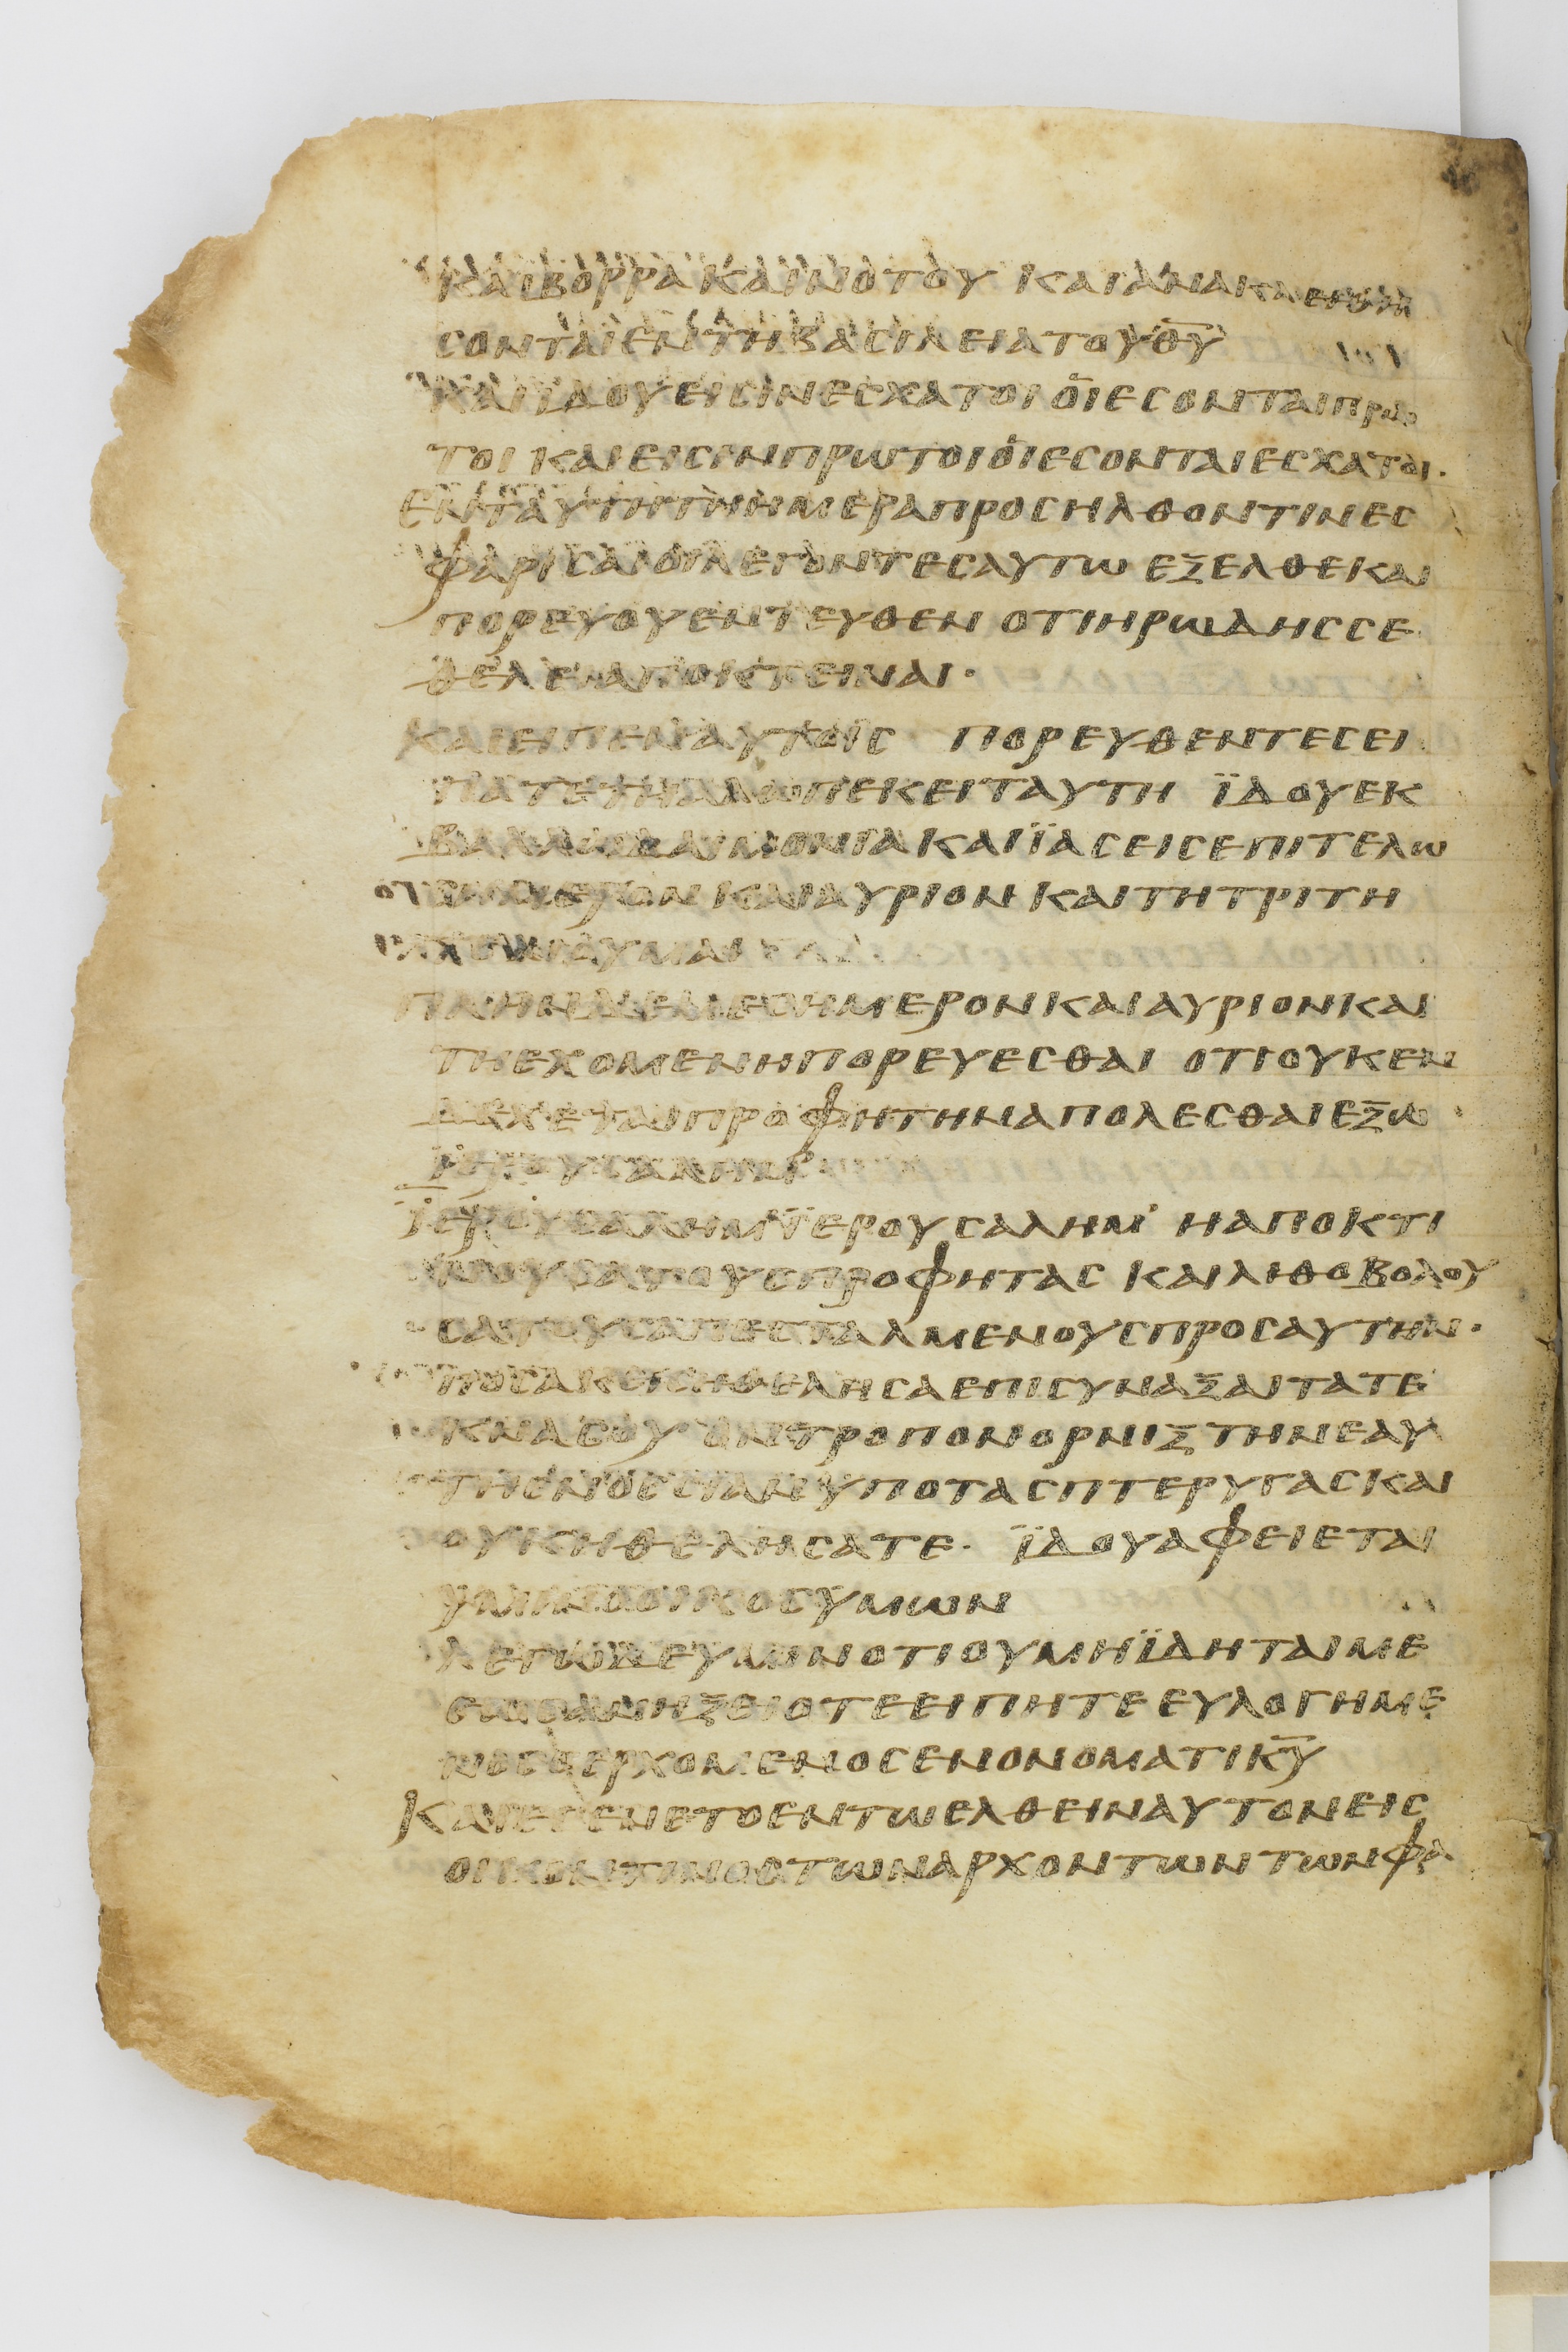 και βορρα και νοτου και ανακλειθη
σονται εν τη βασιλεια του θ̅υ̅
και ϊδου εισιν εσχατοι οι εσονται πρω
τοι και εισιν πρωτοι οι εσονται εσχατοι·
εν ταυτη τη ημερα προσηλθον τινες
φαρισαιοι λεγοντες αυτω εξελθε και
πορευου εντευθεν οτι ηρωδης σε
θελει αποκτειναι·
και ειπεν αυτοις πορευθεντες ει
πατε τη αλωπεκει ταυτη ϊδου εκ
βαλλω δαιμονια και ϊασεις επιτελω
σημερον και αυριον και τη τριτη
τελειουμαι
πλην δει με σημερον και αυριον και
τη εχομενη πορευεσθαι οτι ουκ εν
δεχεται προφητην απολεσθαι εξω
ϊερουσαλημ
ϊερουσαλημ ϊερουσαλημ η αποκτι
νουσα τους προφητας και λιθοβολου
σα τους απεσταλμενους προς αυτην·
ποσακεις ηθελησα επισυναξαι τα τε
κνα σου ον τροπον ορνιξ την εαυ
της νοσσιαν υπο τας πτερυγας και
ουκ ηθελησατε· ϊδου αφειεται
υμιν ο οικος υμων
λεγω δε υμιν οτι ου μη ϊδηται με
εως αν ηξει οτε ειπητε ευλογημε
νος ο ερχομενος εν ονοματι κ̅υ̅
και εγενετο εν τω ελθειν αυτον εις
οικον τινος των αρχοντων των φα